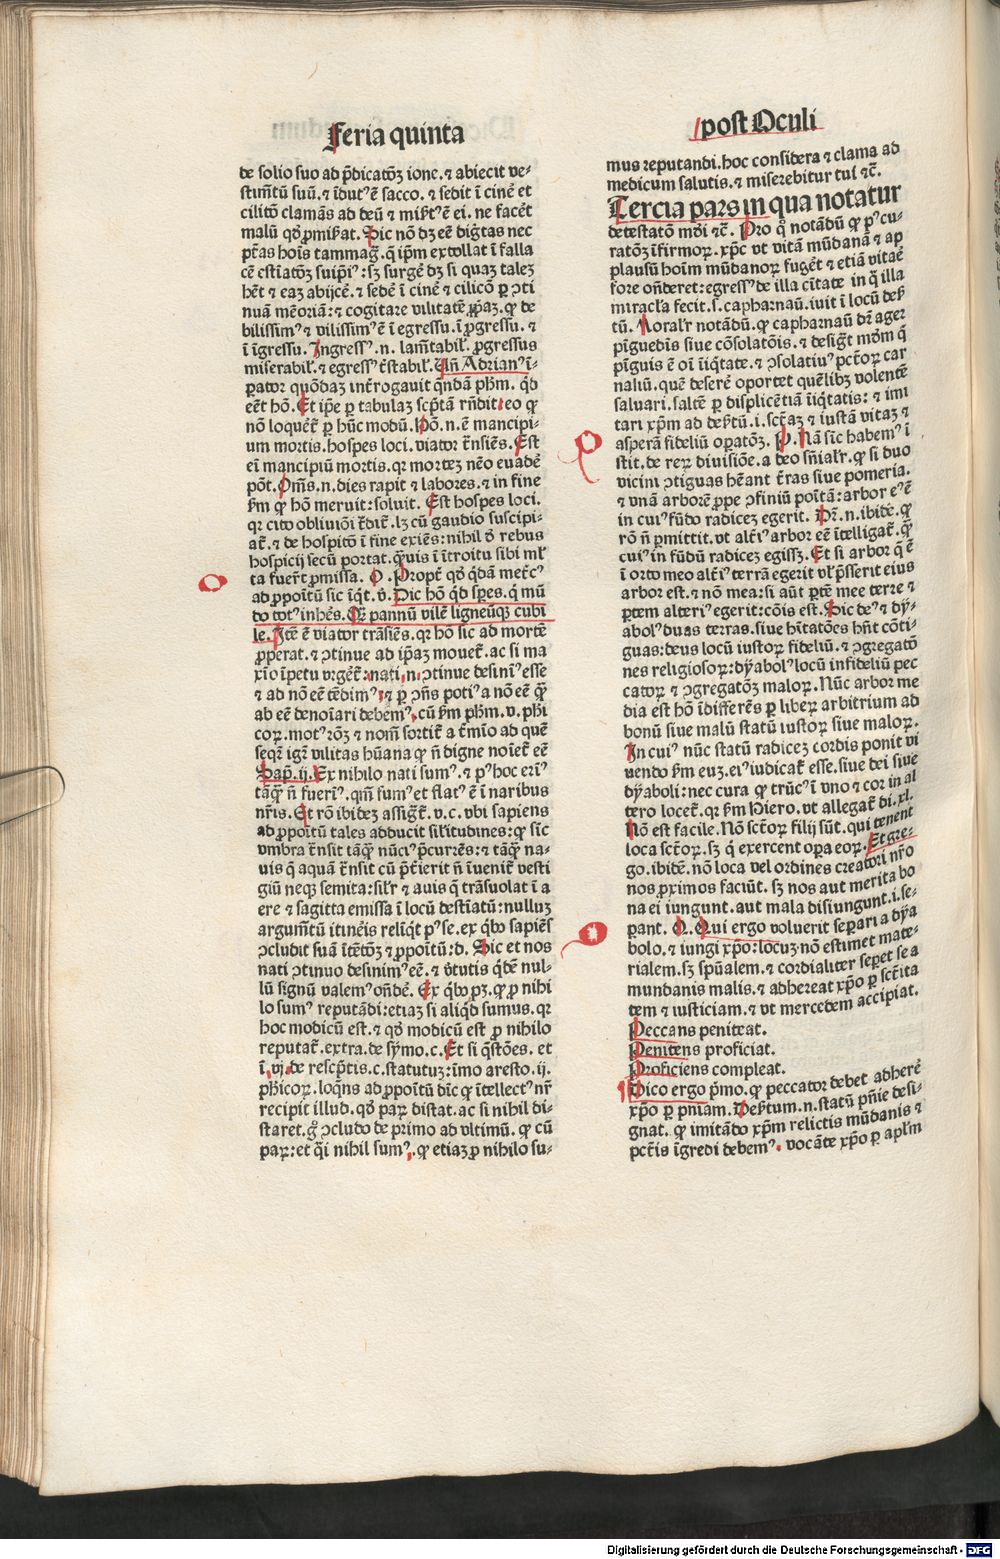 Feria quinta
de solio suo ad p̄dicatōꝫ ionc. ⁊ abiecit ve⸗
stimētū suū. ⁊ īdutꝰ ē sacco. ⁊ sedit ī cinē et
cilitō clamās ad deū ⁊ mis̄tꝰ ē ei. ne facēt
malū qđ ꝓmis̄at. Sic nō dꝫ eē diḡtas nec
ptās hoīs tam maḡ. q̄ ip̄m extollat ī falla
cē estīatōꝫ suip̄iꝰ: sꝫ surgē dꝫ si quaꝫ taleꝫ
hēt ⁊ eaꝫ abijcē. ⁊ sedē ī cinē ⁊ cilicō ꝑ ↄti
nuam mēoriā: ⁊ cogitare vilitatē ꝓpaꝫ. ꝙ de
bilissimꝰ ⁊ vilissimꝰ ē ī egressu. ī ꝓgressu. ⁊
ī īgressu. Ingressꝰ .n. lam̄tabil̄. ꝓgressus
miserabil̄. ⁊ egressꝰ t̄stabil̄. Uñ Adrianꝰ ī⸗
ꝑator quōdaꝫ int̄rogauit q̄ndā ph̄m. qđ
eēt hō. Et ip̄e ꝑ tabulaꝫ scp̄tā rn̄dit. eo ꝙ
nō loquet̄ ꝑ hūc modū. Hō .n. ē mancipi⸗
um mortis. hospes loci. viator t̄nsiēs. Est
ei mancipiū mortis. qr morteꝫ nēo euadē
pōt. Om̄s .n. dies rapit ⁊ labores. ⁊ in fine
s̄m ꝙ hō meruit: soluit. Est hospes loci.
qr cito obliuiōi t̄dit̄. lꝫ cū gaudio suscipi⸗
at̄. ⁊ de hospitō ī fine exiēs: nihil đ rebus
hospicij secū portat. q̄uis ī ītroitu sibi ml̄
ta fuer̄t ꝓmissa. O. Propt̄ qđ q̄dā met̄cꝰ
ad ꝓpoītū sic īq̄t. v̄. Dic hō qđ spes. q̄ mū
do totꝰ inhes. Qr̄ pannū vilē ligneūqꝫ cubi
le. Itē ē viator trāsiēs. qr hō sic ad mortē
ꝓperat. ⁊ ↄtinue ad ip̄aꝫ mouet̄. ac si ma
xīo īpetu vrget̄: nati .n. ↄtinue desinīꝰ esse
⁊ ad nō eē tēdimꝰ: ⁊ ꝑ ↄn̄s potiꝰ a nō eē q̄
ab eē denoīari debēmꝰ. cū s̄m ph̄m. v. ph̄i
coꝝ. motꝰ rōꝫ ⁊ nom̄ sortit̄ a t̄mīo ad quē
seqr̄ igr̄ vilitas hūana ꝙ n̄ digne noīet̄ eē
Sap̄. ij. Ex nihilo nati sumꝰ. ⁊ pꝰ hoc erīꝰ
tāq̄ n̄ fuerīꝰ. qm̄ fumꝰ et flatꝰ ē ī naribus
nr̄is. Et rō ibideꝫ assig̃t̄. v. c. vbi sapiens
ad ꝓpoītū tales adducit sil̄itudines: ꝙ sic̄
vmbra t̄nsit tāq̄ nūciꝰ p̄currēs: ⁊ tāq̄ na⸗
uis q̄ aquā t̄nsit cū p̄t̄ierit n̄ īuenit̄ vesti
giū neqꝫ semita: sil̄r ⁊ auis q̄ trāsuolat ī a
ere ⁊ sagitta emissa ī locū destīatū: nulluꝫ
argumētū itineīs reliq̄t pꝰ se. ex qb̄ꝰ sapiēs
ↄcludit suā ītētōꝫ ⁊ ꝓpoītū: d. Sic et nos
nati ↄtinuo desinimꝰ eē. ⁊ v̄tutis q̄dē nul⸗
lū signū valemꝰ on̄dē. Ex qb̄ꝰ pꝫ. ꝙ ꝓ nihi
lo sumꝰ reputādi: etiaꝫ si aliqđ sumus. qr
hoc modicū est. ⁊ qđ modicū est ꝓ nihilo
reputat̄. extra. de sȳmo. c. Et si q̄stōes. et
ī. vj. de rescp̄tis. c. statutuꝫ: īmo aresto. ij.
ph̄icoꝝ. loqn̄s ad ꝓpoītū dic̄ ꝙ ītellectꝰ nr̄
recipit illud. qđ paꝝ distat. ac si nihil di⸗
staret. g̊ ↄcludo de primo ad vltimū. ꝙ cū
paꝝ: et q̄i nihil sumꝰ. ꝙ etiaꝫ ꝓ nihilo su⸗
post Oculi
mus reputandi. hoc considera ⁊ clama ad
medicum salutis. ⁊ miserebitur tui ⁊c̄.
Tercia pars in qua notatur
detestatō mōi ⁊c̄. Pro q̊ notādū ꝙ pꝰ cu⸗
ratōꝫ īfirmoꝝ. xp̄c vt vitā mūdanā ⁊ ap
plausū hoīm mūdanoꝝ fugēt ⁊ etiā vitaē
fore on̄deret: egressꝰ de illa cītate in q̄ illa
miracl̄a fecit. s. capharnaū. iuit ī locū des̄
tū. Moralr̄ notādū. ꝙ capharnaū dr̄ ager
pīguedis siue cōsolatōis. ⁊ desiḡt mōm q̄
pīguis ē oī īiq̄tate. ⁊ ↄsolatiuꝰ pctōꝝ car
naliū. quē deserē oportet quēlibꝫ volentē
saluari. saltē ꝑ displicētiā īiq̄tatis: ⁊ imi
tari xp̄m ad des̄tū .i. sctāꝫ ⁊ iustā vitaꝫ ⁊
asperā fideliū oꝑatōꝫ. P. Nā sic̄ habemꝰ ī
stit. de reꝝ diuisiōe. a deo sn̄ialr̄. ꝙ si duo
vicini ↄtiguas hēant t̄ras siue pomeria.
⁊ vnā arborē ꝓpe ↄfiniū poītā: arbor eꝰ ē
in cuiꝰ fūdo radiceꝫ egerit. Dr̄ .n. ibidē. ꝙ
rō n̄ ꝑmittit. vt alt̄iꝰ arbor eē ītelligat̄. q̄
cuiꝰ in fūdū radiceꝫ egissꝫ. Et si arbor q̄ ē
ī orto meo alt̄iꝰ terrā egerit vl̄ p̄sserit eius
arbor est. ⁊ nō mea: si aūt ꝑtē mee terre ⁊
ꝑtem alteriꝰ egerit: cōis est. Sic deꝰ ⁊ dȳ⸗
abolꝰ duas terras. siue hītatōes hn̄t cōti⸗
guas: deus locū iustoꝝ fideliū. ⁊ ↄgregatō
nes religiosoꝝ: dȳabolꝰ locū infideliū pec
catoꝝ ⁊ ↄgregatōꝫ maloꝝ. Nūc arbor me
dia est hō īdifferēs ꝑ libeꝝ arbitrium ad
bonū siue malū statū iustoꝝ siue maloꝝ.
In cuiꝰ nūc statū radiceꝫ cordis ponit vi
uendo s̄m euꝫ. eiꝰ iudicat̄ esse. siue dei siue
dȳaboli: nec cura ꝙ trūcꝰ ī vno ⁊ cor in al
tero locet̄. qr s̄m Hiero. vt allegat̄ di. xl.
Nō est facile. Nō sctōꝝ filij sūt. qui tenent
loca sctōꝝ. sꝫ q̄ exercent oꝑa eoꝝ. Et gre⸗
go. ibidē. nō loca vel ordines creatori nr̄o
nos proximos faciūt. sꝫ nos aut merita bo
na ei iungunt. aut mala disiungunt. i. se⸗
parant. Q. Qui ergo voluerit separi a dȳa
bolo. ⁊ iungi xp̄o: locuꝫ nō estimet mate⸗
rialem. sꝫ spūalem. ⁊ cordialiter seꝑet se a
mundanis malis. ⁊ adhereat xp̄o ꝑ sctīta
tem ⁊ iusticiam. ⁊ vt mercedem accipiat.
Peccans peniteat.
Penitens proficiat.
Proficiens compleat.
Dico ergo p̄mo. ꝙ peccator debet adherē
xp̄o ꝑ pn̄iam. Des̄tum .n. statū pn̄ie desi⸗
gnat. ꝙ imitādo xp̄m relictis mūdanis ⁊
pctīs īgredi debemꝰ. vocāte xp̄o ꝑ apl̄m
Digitalisierung gefördert durch die Deutsche Forschungsgemeinschaft - DFG